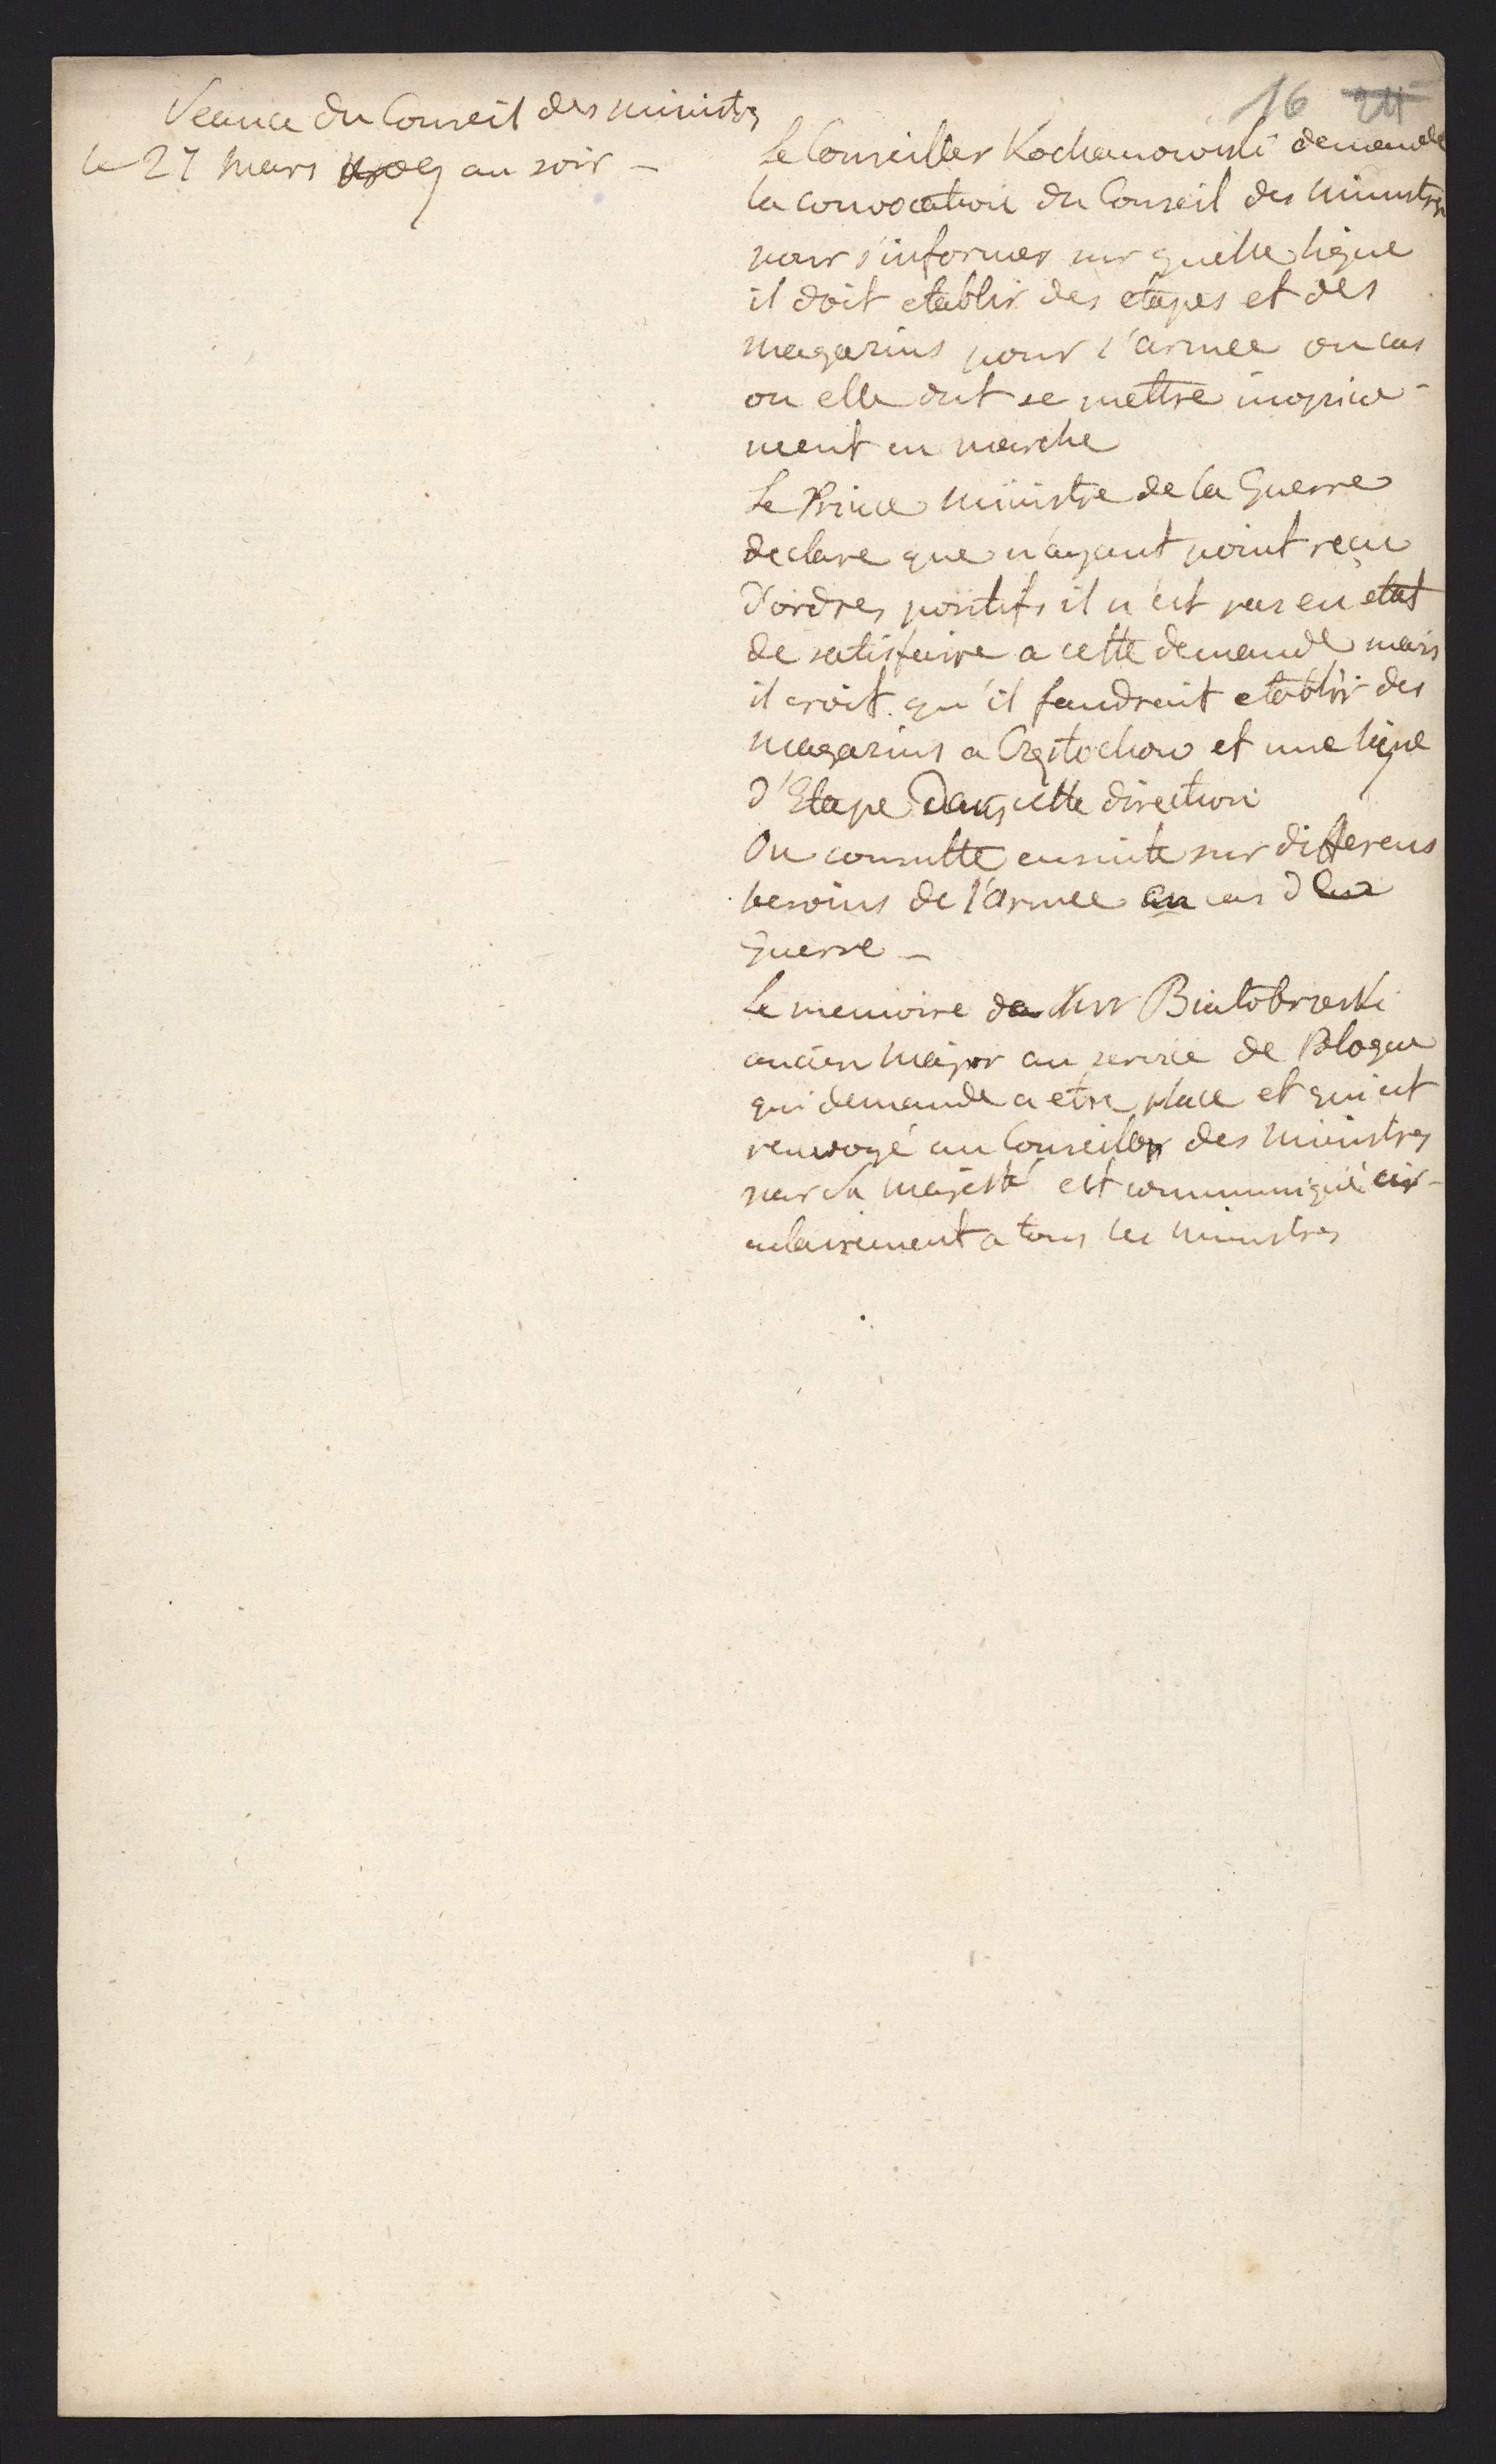 16 24
Seance du Conseil des ministres
le 27 Mars 1809 au soir –
Le Conseiller Kochanowski demande
la convocation du Conseil des Ministres
pour s'informer sur quelle ligne
il doit etablir des etapes et des
magazins pour l'armee au cas
ou elle dut se mettre inopine-
ment en marche
Le Prince Ministre de la Guerre
declare que n'ayant point reçu
d'ordres positifs il n'est pas en etat
de satisfaire a cette demande mais
il croit qu'il faudrait etablir des
magazins a Częstochow et une ligne
d'Etape dans cette direction
On consulte ensuite sur differens
besoins de l'armee au cas de
Guerre –
Le memoire de Białobrzeski
ancien Major au service de Pologne
qui demande a etre placé et qui est
renvoyé au Conseil des Ministres
par Sa Majesté est communiqué cir-
culairement a tous les Ministres